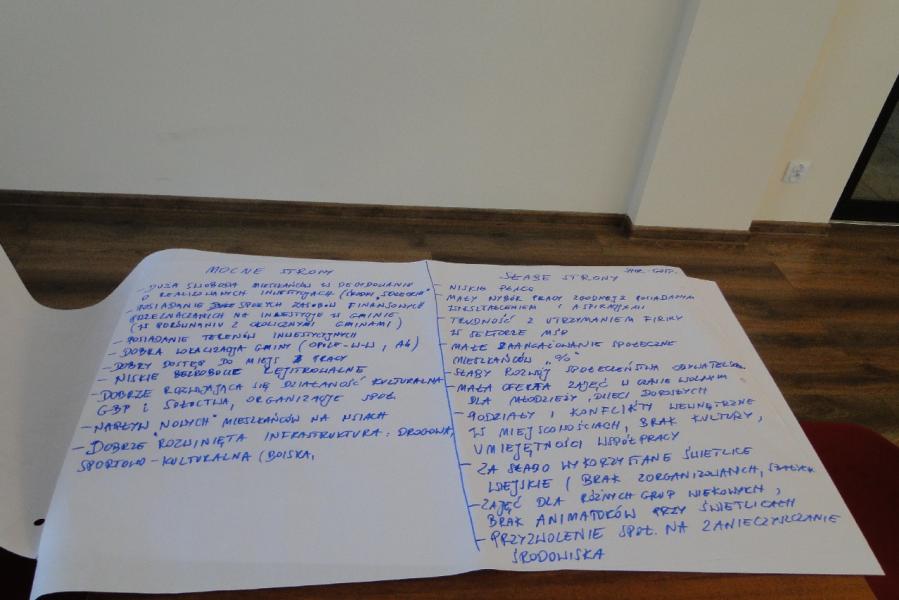 MOCNE STRONY
- DUŻA SWOBODA MIESZKAŃCÓW W DECYDOWANIU
O REALIZOWANYCH INWESTYCJACH (ŚRODKI „SOŁECKIE”
- POSIADANIE SPORYCH ZASOBÓW FINANSOWYCH
PRZEZNACZONYCH NA INWESTYCJE W GMINIE
(W PORÓWNANIU Z OKOLICZNYMI GMINAMI)
- POSIADANIE TERENÓW INWESTYCYJNYCH
- DOBRA LOKALIZACJA GMINY (OPOLE-W-W, A4)
- DOBRY DOSTĘP DO MIEJSC PRACY
- NISKIE BEZROBOCIE REJESTROWANE
- DOBRZE ROZWIJAJĄCA SIĘ DZIAŁANOŚĆ KULTURALNA
GBP I SOŁECTWA, ORGANIZACJE SPOŁ.
- NAPŁYW „NOWYCH” MIESZKAŃCÓW NA WSIACH
- „DOBRZE” ROZWINIĘTA INFRASTRUKTURA: DROGOWA,
SPORTOWO-KULTURALNA (BOISKA,
SŁABE STRONY
- NISKIE PŁACE
MAŁY WYBÓR PRACY ZGODNEJ Z POSIADANYM
WYKSZTAŁCENIEM I ASPIRACJAMI
- TRUDNOŚĆ Z UTRZYMANIEM FIRMY
W SEKTORZE MŚP
- MAŁE ZAANGAŻOWANIE SPOŁECZNE
MIESZKAŃCÓW „%”
- SŁABY ROZWÓJ SPOŁECZEŃSTWA OBYWATELSK.
- MAŁA OFERTA ZAJĘĆ W CZASIE WOLNYM
DLA MŁODZIEŻY, DZIECI DOROSŁYCH
- PODZIAŁY I KONFLIKTY WEWNĘTRZNE
W MIEJSCOWOŚCIACH, BRAK KULTURY,
UMIEJĘTNOŚCI WSPÓŁPRACY
- ZA SŁABO WYKORZYSTANE ŚWIETLICE
WIEJSKIE (BRAK ZORGANIZOWANYCH,
- ZAJĘĆ DLA RÓŻNYCH GRUP WIEKOWYCH,
BRAK ANIMATORÓW PRZY ŚWIETLICACH
- PRZYZWOLENIE SPOŁ. NA ZANIECZYSZCZANIE
ŚRODOWISKA